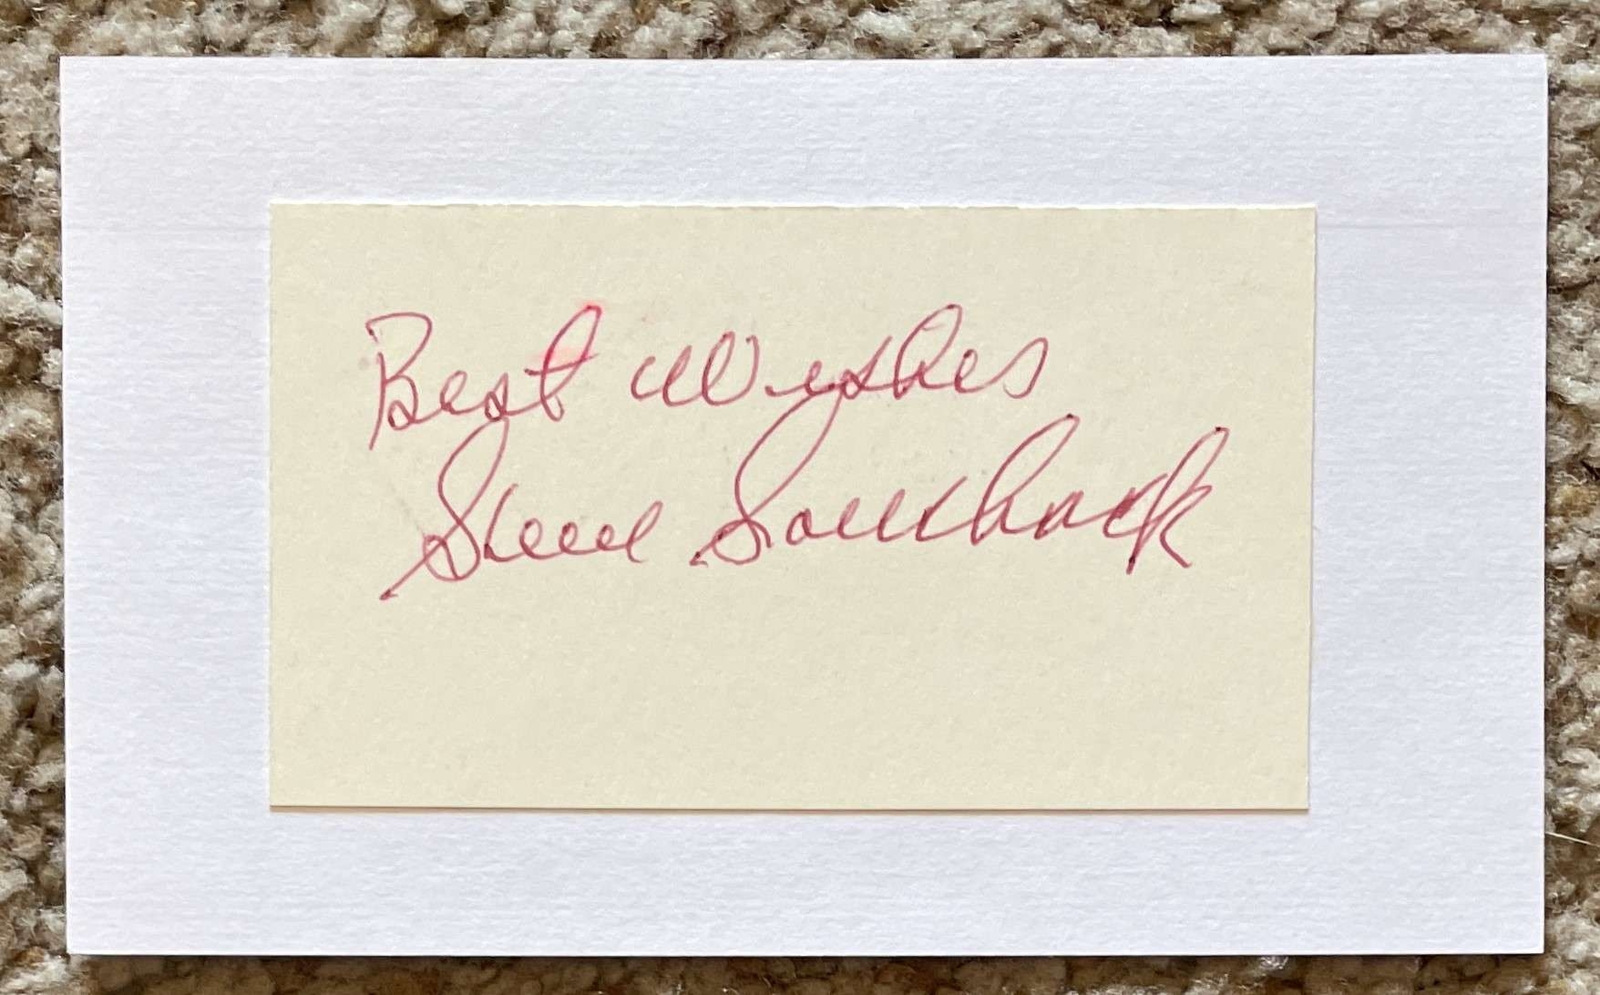 Best Wishes
Steve Souchock